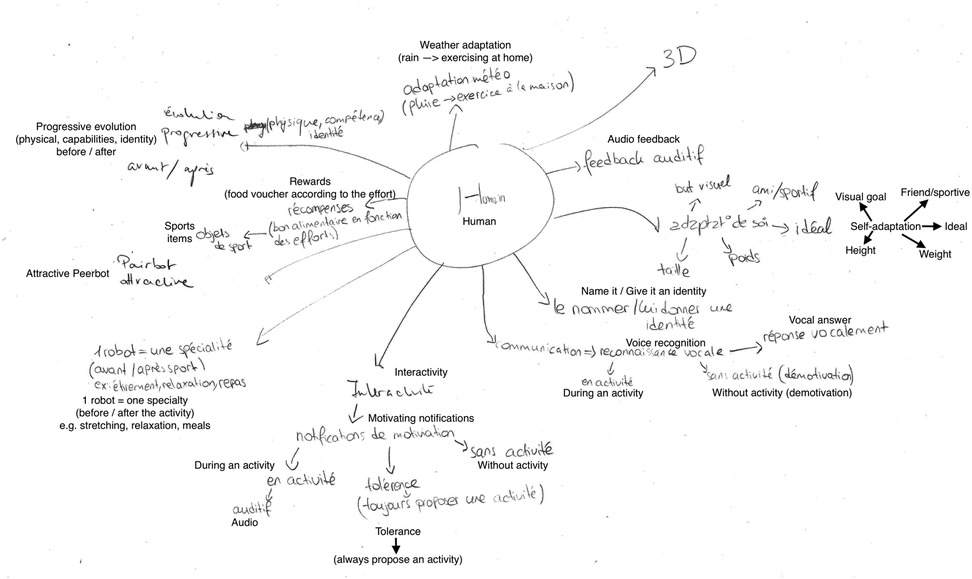 Weather adaptation
(rain —> exercising at home)
adaptation météo
(pluie → exercice à la maison)
3D
évolution
progressive (physique, compétence,
identité
avant / après
Progressive evolution
(physical, capabilities, identity)
before / after
Audio feedback
feedback auditif
Humain
Human
Rewards
(food voucher according to the effort)
récompenses
(bon alimentaire en fonction
des efforts)
Sports
items
objets
de sport
but visuel
ami/sportif
adaptat° de soi → idéal
taille
poids
Visual goal
Friend/sportive
Self-adaptation
Ideal
Height
Weight
Attractive Peerbot
Pairbot
attractive
Name it / Give it an identity
le nommer / lui donner une
identité
1 robot = une spécialité
(avant / après sport)
ex: étirement, relaxation, repas
1 robot = one specialty
(before / after the activity)
e.g. stretching, relaxation, meals
Voice recognition
communication => reconnaissance vocale
Vocal answer
réponse vocalement
en activité
During an activity
sans activité (démotivation)
Without activity (demotivation)
Interactivity
Interactivité
Motivating notifications
notifications de motivation
During an activity
en activité
auditif
Audio
tolérence
(toujours proposer une activité)
Tolerance
(always propose an activity)
sans activité
Without activity